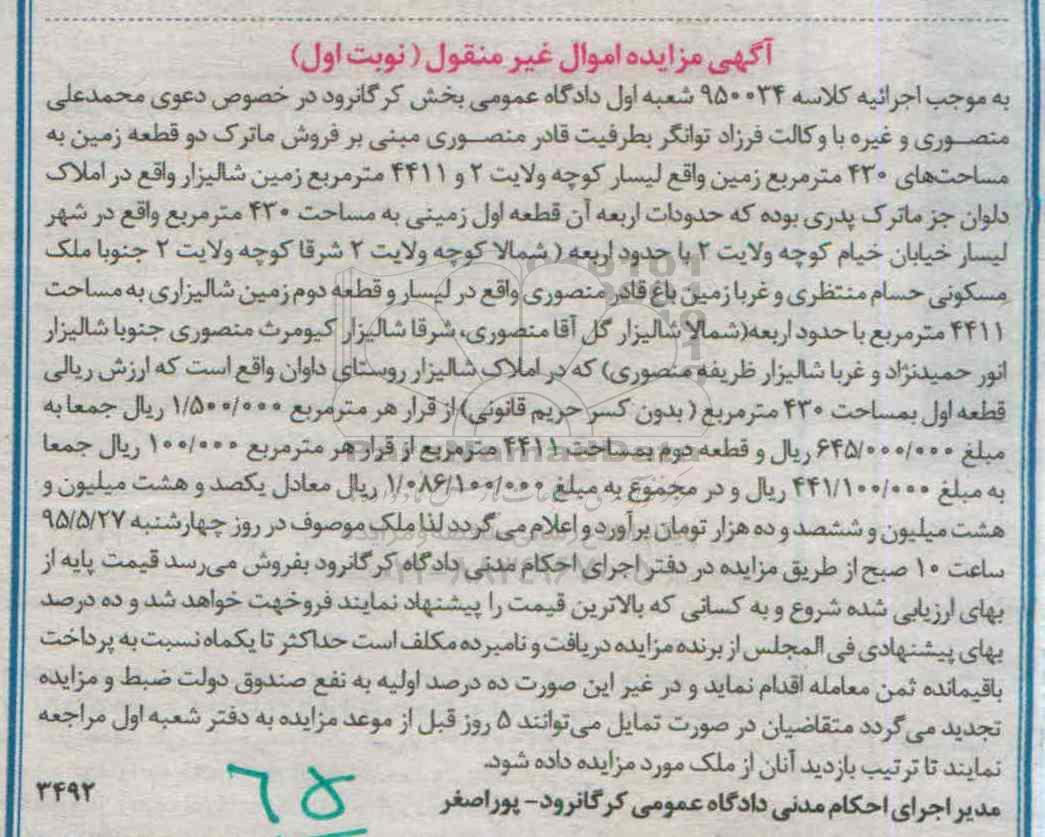 آگهی مزایده اموال غیر منقول (نوبت اول)
به موجب اجرائیه کلاسه ۹۵۰۰۳۴ شعبه اول دادگاه عمومی بخش کرگانرود در خصوص دعوی محمدعلی
منصوری و غیره با وکالت فرزاد توانگر بطرفیت قادر منصوری مبنی بر فروش ماترک دو قطعه زمین به
مساحت‌های ۴۳۰ مترمربع زمین واقع لیسار کوچه ولایت ۲ و ۴۴۱۱ مترمربع زمین شالیزار واقع در املاک
دلوان جز ماترک پدری بوده که حدودات اربعه آن قطعه اول زمینی به مساحت ۴۳۰ مترمربع واقع در شهر
لیسار خیابان خیام کوچه ولایت ۲ با حدود اربعه ( شمالا کوچه ولایت ۲ شرقا کوچه ولایت ۲ جنوبا ملک
مسکونی حسام منتظری و غربا زمین باغ قادر منصوری واقع در لیسار و قطعه دوم زمین شالیزاری به مساحت
۴۴۱۱ مترمربع با حدود اربعه(شمالا شالیزار گل آقا منصوری، شرقا شالیزار کیومرث منصوری جنوبا شالیزار
انور حمیدنژاد و غربا شالیزار ظریفه منصوری) که در املاک شالیزار روستای داوان واقع است که ارزش ریالی
قطعه اول بمساحت ۴۳۰ مترمربع ( بدون کسر حریم قانونی) از قرار هر مترمربع ۱/۵۰۰/۰۰۰ ریال جمعا به
مبلغ ۶۴۵/۰۰۰/۰۰۰ ریال و قطعه دوم بمساحت ۴۴۱۱ مترمربع از قرار هر مترمربع ۱۰۰/۰۰۰ ریال جمعا
به مبلغ ۴۴۱/۱۰۰/۰۰۰ ریال و در مجموع به مبلغ ۱/۰۸۶/۱۰۰/۰۰۰ ریال معادل یکصد و هشت میلیون و
هشت میلیون و ششصد و ده هزار تومان برآورد و اعلام می‌گردد لذا ملک موصوف در روز چهارشنبه ۹۵/۵/۲۷
ساعت ۱۰ صبح از طریق مزایده در دفتر اجرای احکام مدنی دادگاه کرگانرود بفروش می‌رسد قیمت پایه از
بهای ارزیابی شده شروع و به کسانی که بالاترین قیمت را پیشنهاد نمایند فروخهت خواهد شد و ده درصد
بهای پیشنهادی فی المجلس از برنده مزایده دریافت و نامبرده مکلف است حداکثر تا یکماه نسبت به پرداخت
باقیمانده ثمن معامله اقدام نماید و در غیر این صورت ده درصد اولیه به نفع صندوق دولت ضبط و مزایده
تجدید می‌گردد متقاضیان در صورت تمایل می‌توانند ۵ روز قبل از موعد مزایده به دفتر شعبه اول مراجعه
نمایند تا ترتیب بازدید آنان از ملک مورد مزایده داده شود.
مدیر اجرای احکام مدنی دادگاه عمومی کرگانرود- پوراصغر
۳۴۹۲
۶۵